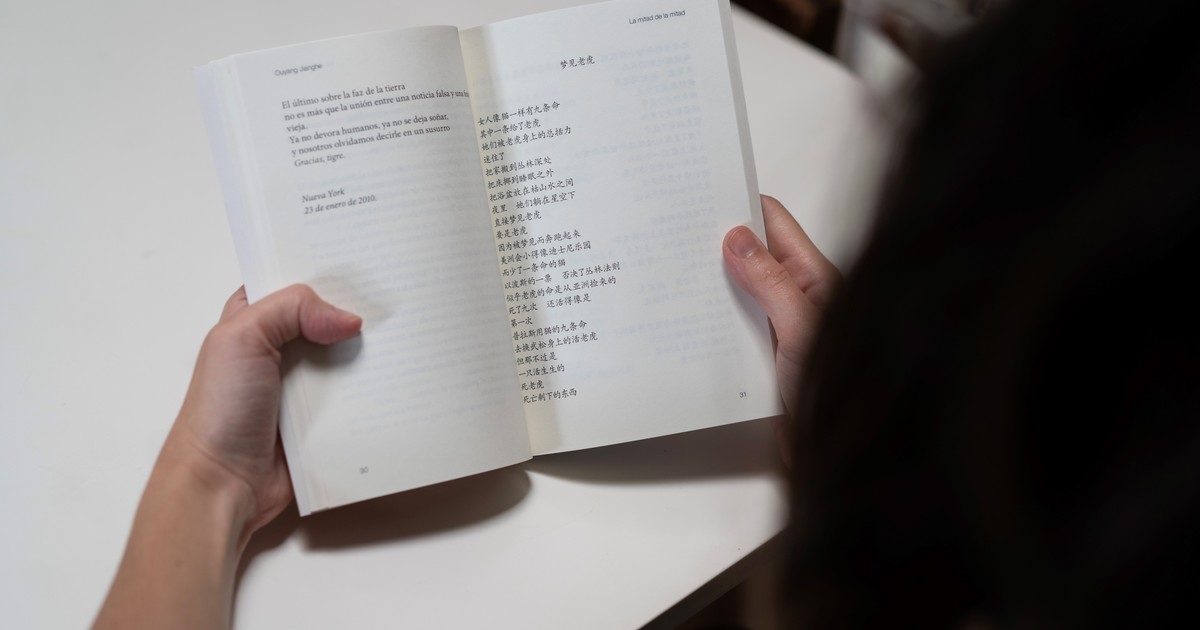 Ouyang Jianghe
El último sobre la faz de la tierra
no es más que la unión entre una noticia falsa y una
vieja.
Ya no devora humanos, ya no se deja soñar,
y nosotros olvidamos decirle en un susurro
Gracias, tigre.
Nueva York
23 de enero de 2010.
30
La mitad de la mitad
梦见老虎
女人像猫一样有九条命
其中一条给了老虎
她们被老虎身上的总括力
迷住了
把家搬到丛林深处
把床挪到睡眠之外
把浴盆放在枯山水之间
夜里 她们躺在星空下
直接梦见老虎
要是老虎
因为被梦见而奔跑起来
美洲会小得像迪士尼乐园
而少了一条命的猫
以波斯的一票 否决了丛林法则
似乎老虎的命是从亚洲捡来的
死了九次 还活得像是
第一次
普拉斯用猫的九条命
去换武松身上的活老虎
但那不过是
一只活生生的
死老虎
死亡剩下的东西
31